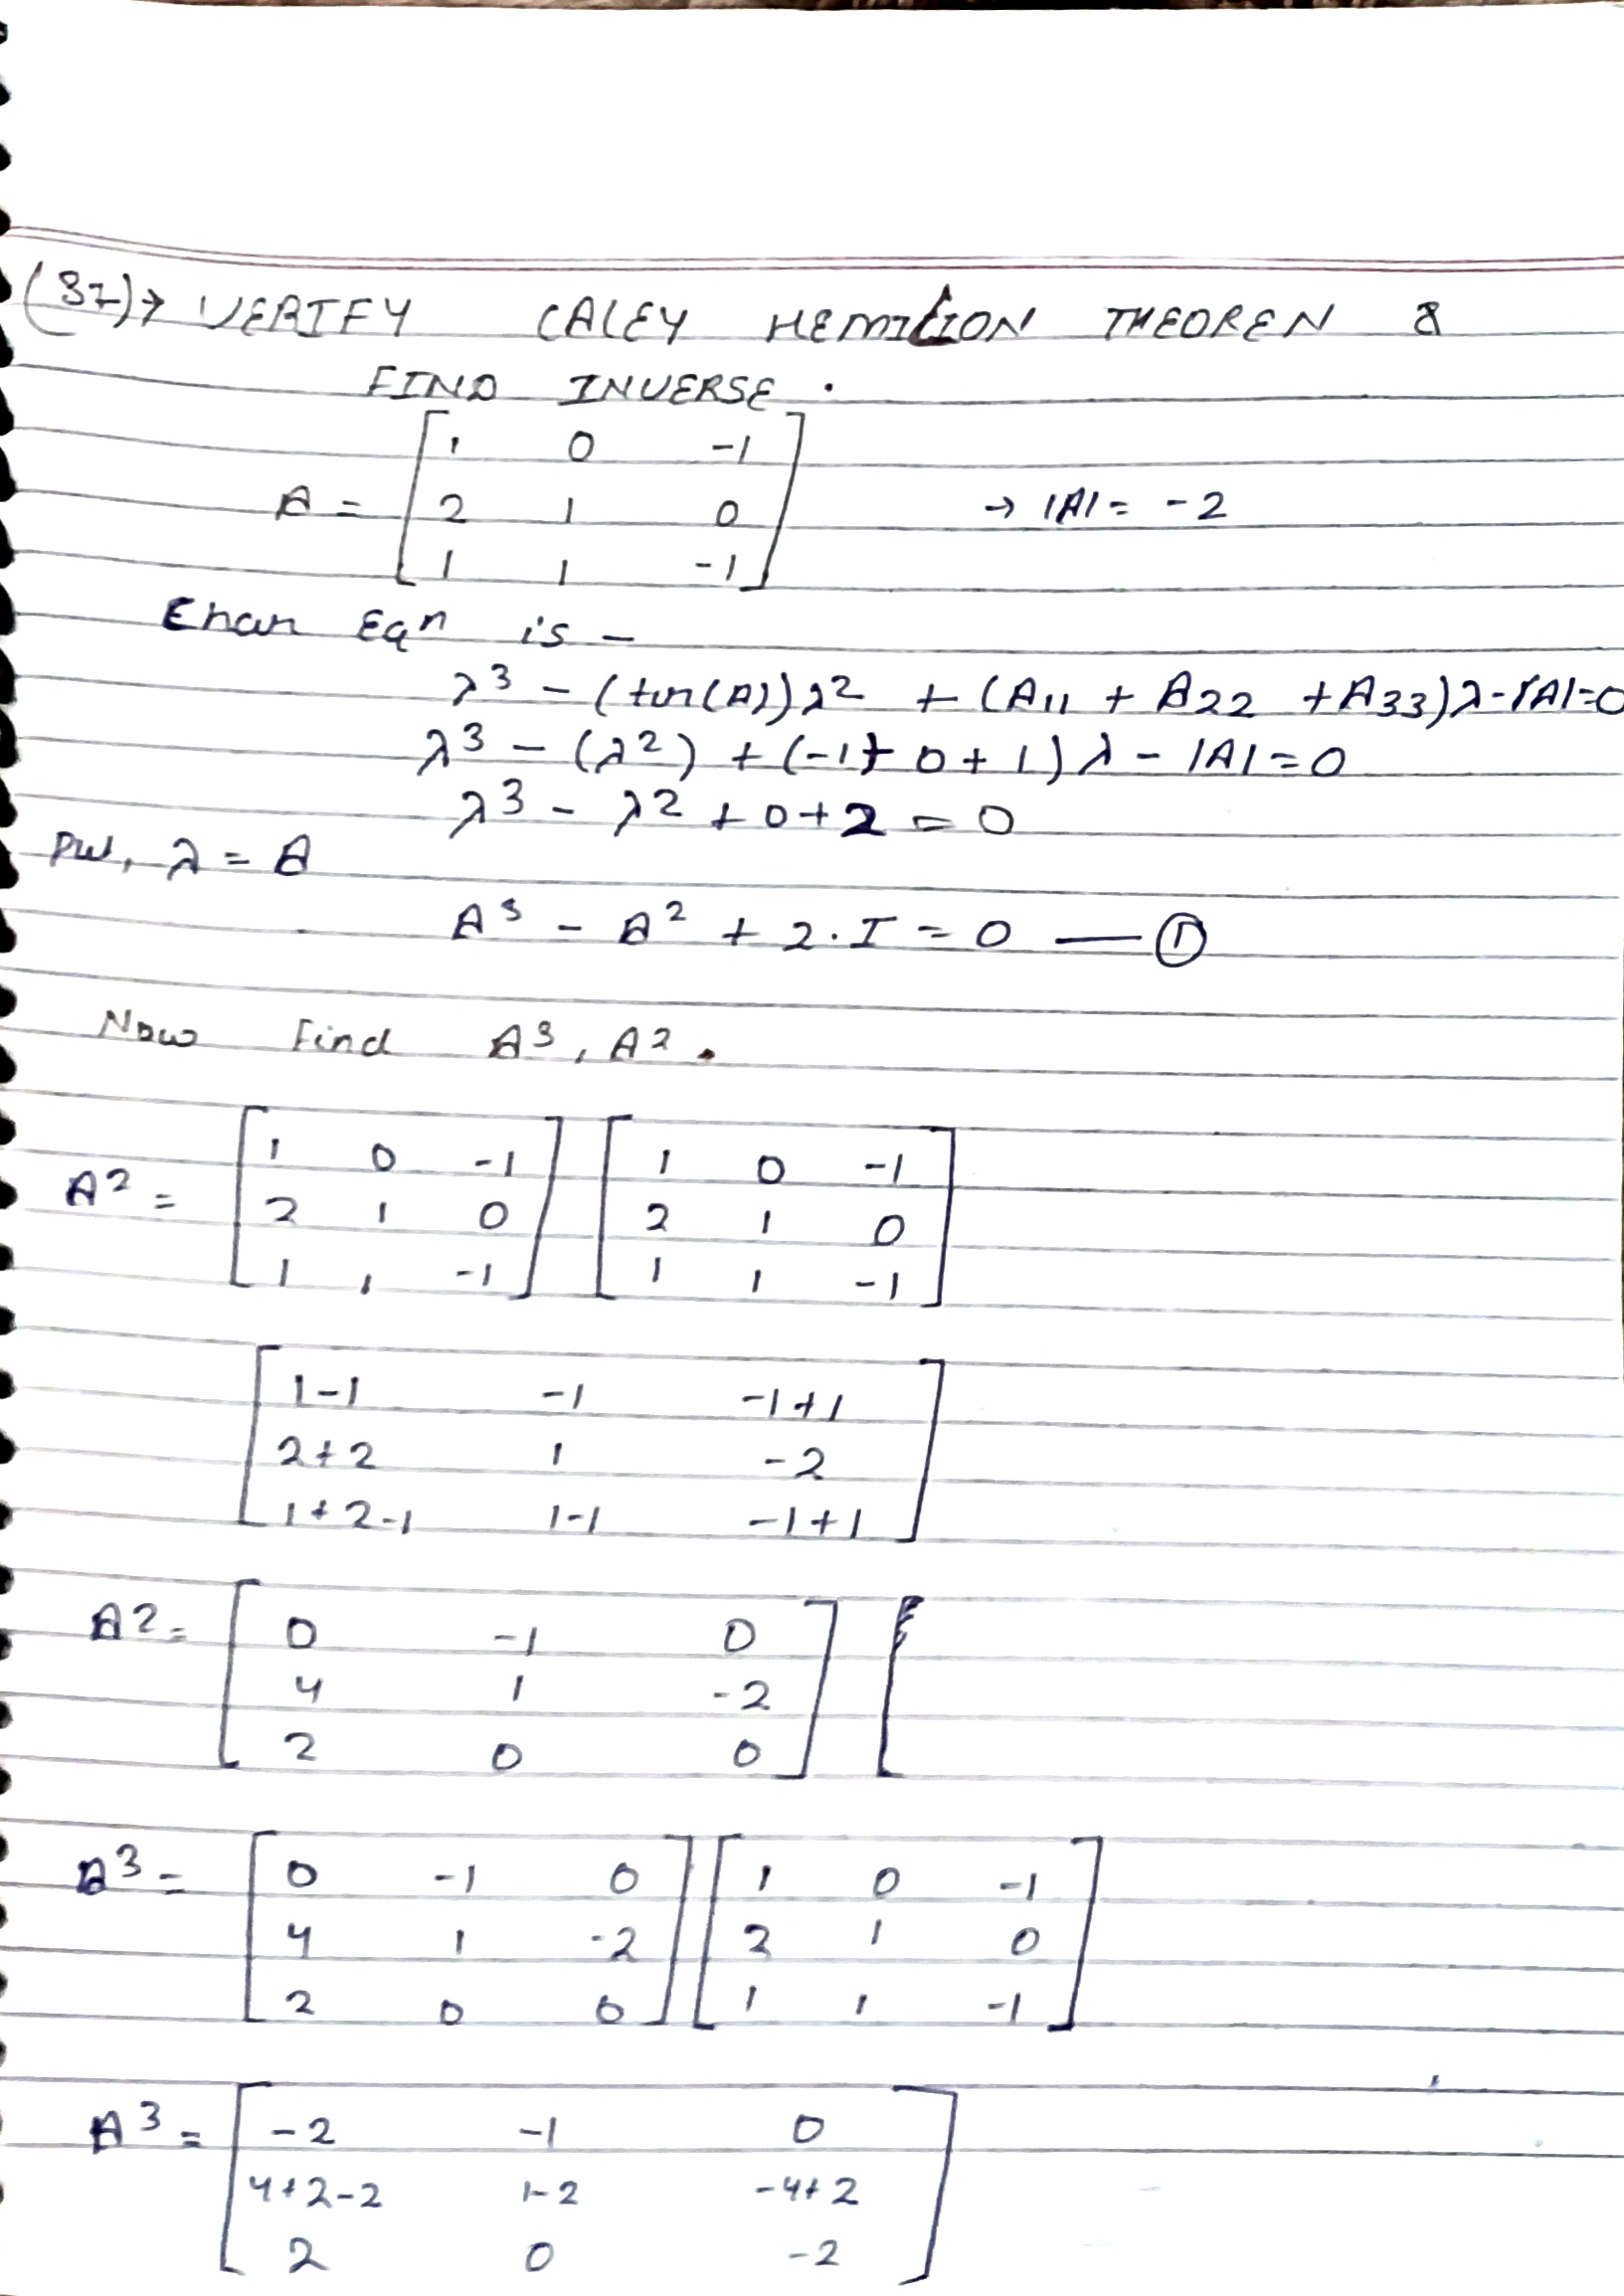 (37)→ VERIFY CALEY HEMILION THEOREN &
FIND INVERSE.
A = [1 0 -1
2 1 0
1 1 -1] → |A| = -2
Char Eqn is -
λ³ - (tr(A))λ² + (A11 + A22 + A33)λ - |A| = 0
λ³ - (λ²) + (-1 + 0 + 1)λ - |A| = 0
λ³ - λ² + 0 + 2 = 0
Put, λ = A
A³ - A² + 2·I = 0 — ①
Now Find A³, A².
A² = [1 0 -1] [1 0 -1]
[2 1 0] [2 1 0]
[1 1 -1] [1 1 -1]
[1-1 -1 -1+1
2+2 1 -2
1+2-1 1-1 -1+1]
A² = [0 -1 0] [
4 1 -2
2 0 0]
A³ = [0 -1 0] [1 0 -1]
[4 1 -2] [2 1 0]
[2 0 0] [1 1 -1]
A³ = [-2 -1 0
4+2-2 1-2 -4+2
2 0 -2]